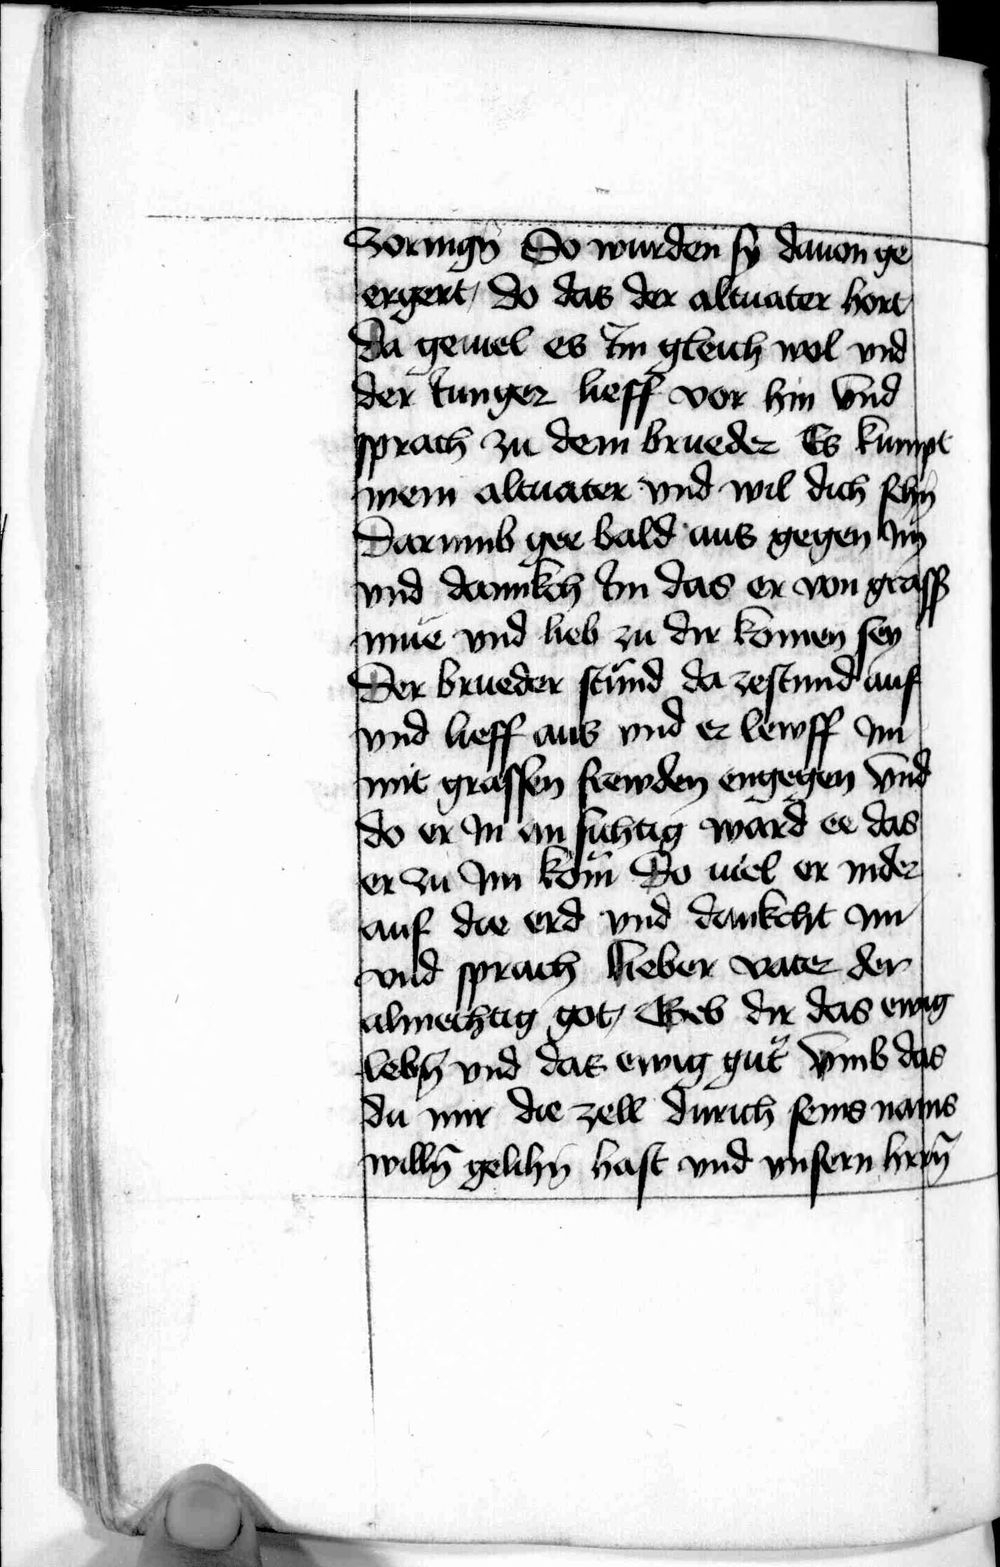 Zornigñ So wurden sy dauon ge
ergert / do das der altuater hort
Da geuiel es Im gleich wol vnd
der Iunger lieff vor hin vnd
sprach zu dem brueder Es kumpt
mein altuater vnd wil dich sehñ
Darumb ger bald aus gegen Im
vnd dannkch Im das er von grasser
mue vnd lieb zu dir komen sey
Der brueder stůnd da zestund auf
vnd lieff aus vnd er lewff Im
mit grassen frewden engegen vnd
do er In an sichtig ward ee das
er zu Im kom Do uiel er nider
auf die erd vnd dankcht Im
vnd sprach lieber vater der
almechtig got / Geb dir das ewig
lebñ vnd das ewig gůt vmb das
du mir die zell durich seins nams
willñ gelihñ hast vnd vnsern hrrñ